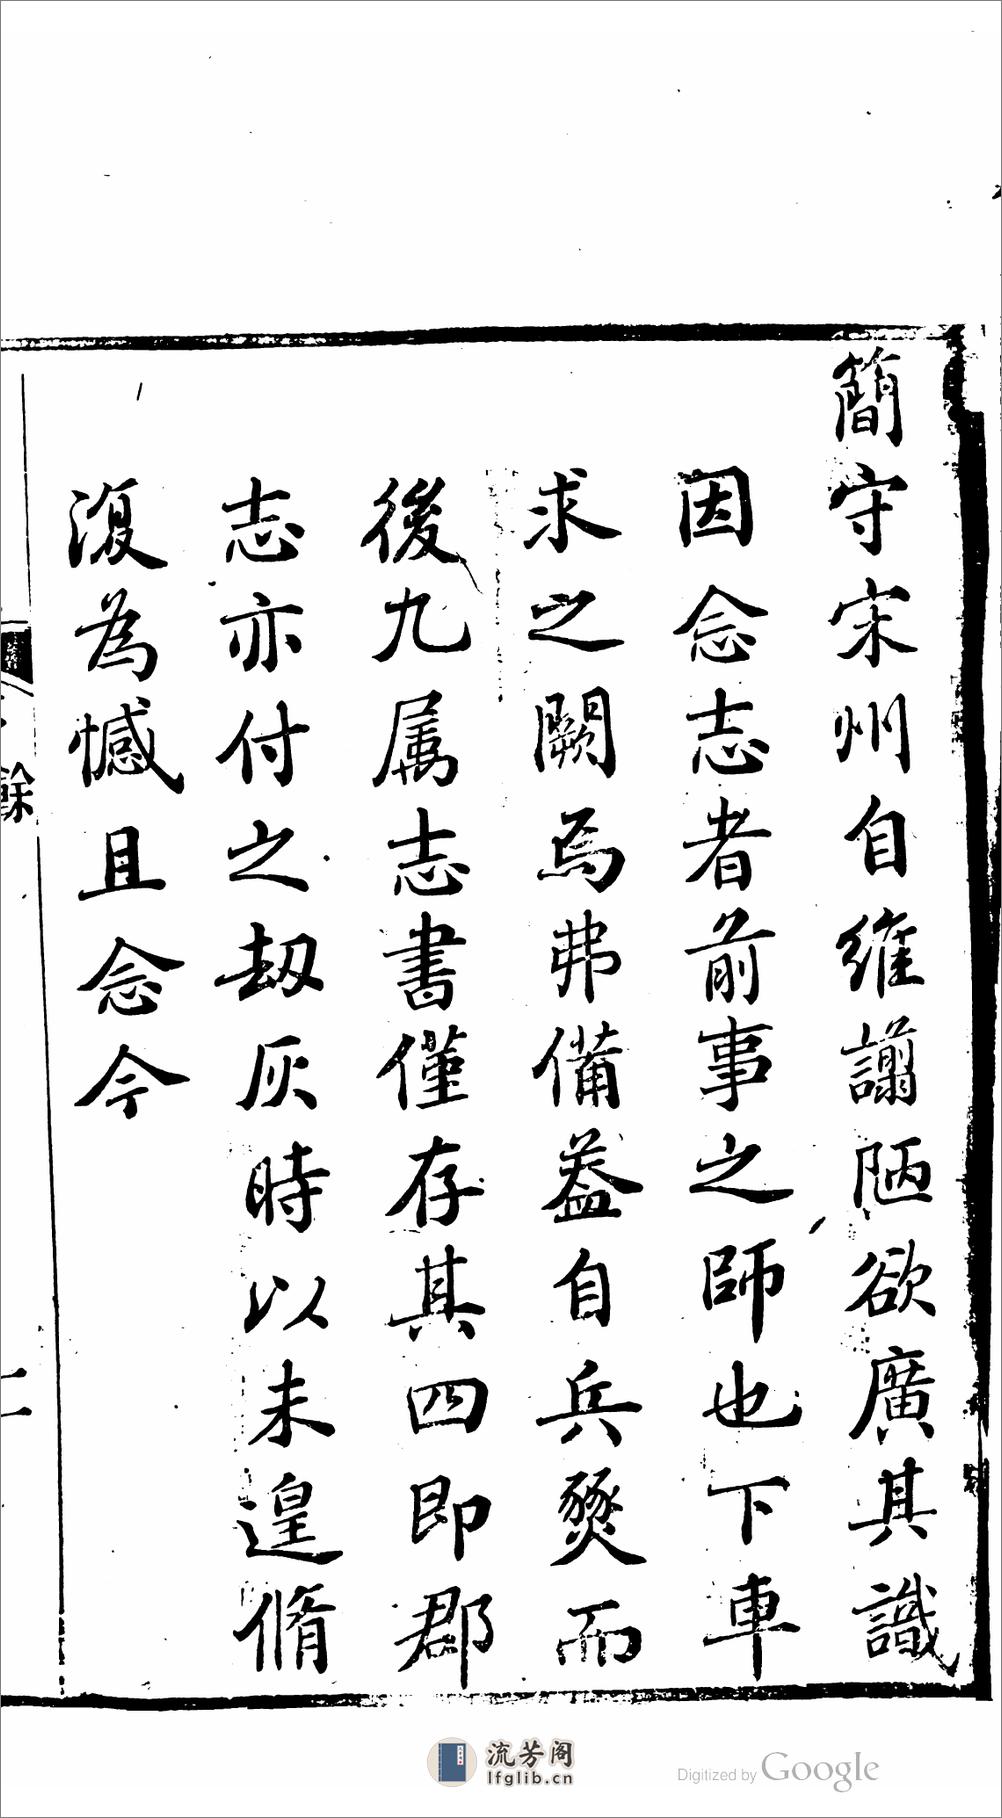 簡守宋州自維謭陋欲廣其識
因念志者前事之師也下車
求之闕焉弗備蓋自兵燹而
後九属志書僅存其四即郡
志亦付之刼灰時以未遑脩
復為憾且念今
餘
二
流芳阁
lfglib.cn
Digitized by Google